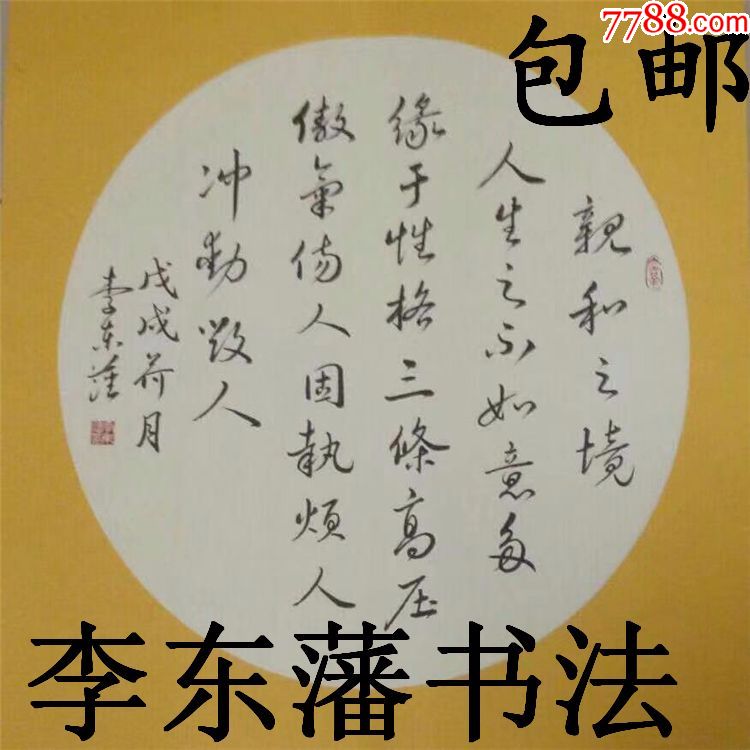 7788.com
包邮
親和之境
人生之不如意多
缘于性格三條高压
傲氣伤人固執煩人
冲動毁人
戊戌荷月
李东藩
李东藩书法